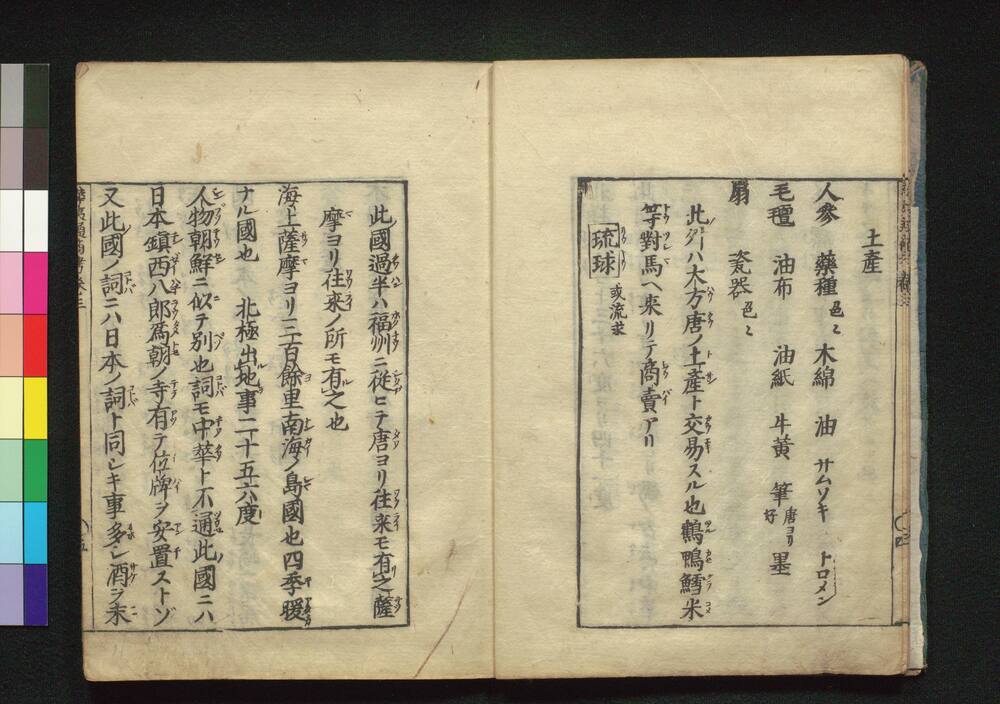 土産
人參 藥種色々 木綿 油 サムソキ トロメン
毛氊 油布 油紙 牛黄 筆唐ヨリ好 墨
扇 瓷器色々
此ハ大方唐ノ土産ト交易スル也鶴鴨鱈米
等對馬ヘ來リテ商賣アリ
琉球 或流求
此國過半ハ福州ニ從ヒテ唐ヨリ往来モ有之薩
摩ヨリ往來ノ所モ有之也
海上薩摩ヨリ三百餘里南海ノ島國也四季暖
ナル國也 北極出地事二十五六度
人物朝鮮ニ似テ別也詞モ中華ト不通此國ニハ
日本鎮西八郎爲朝ノ寺有テ位牌ヲ安置ストゾ
又此國ノ詞ニハ日本ノ詞ト同シキ事多シ酒ヲ米